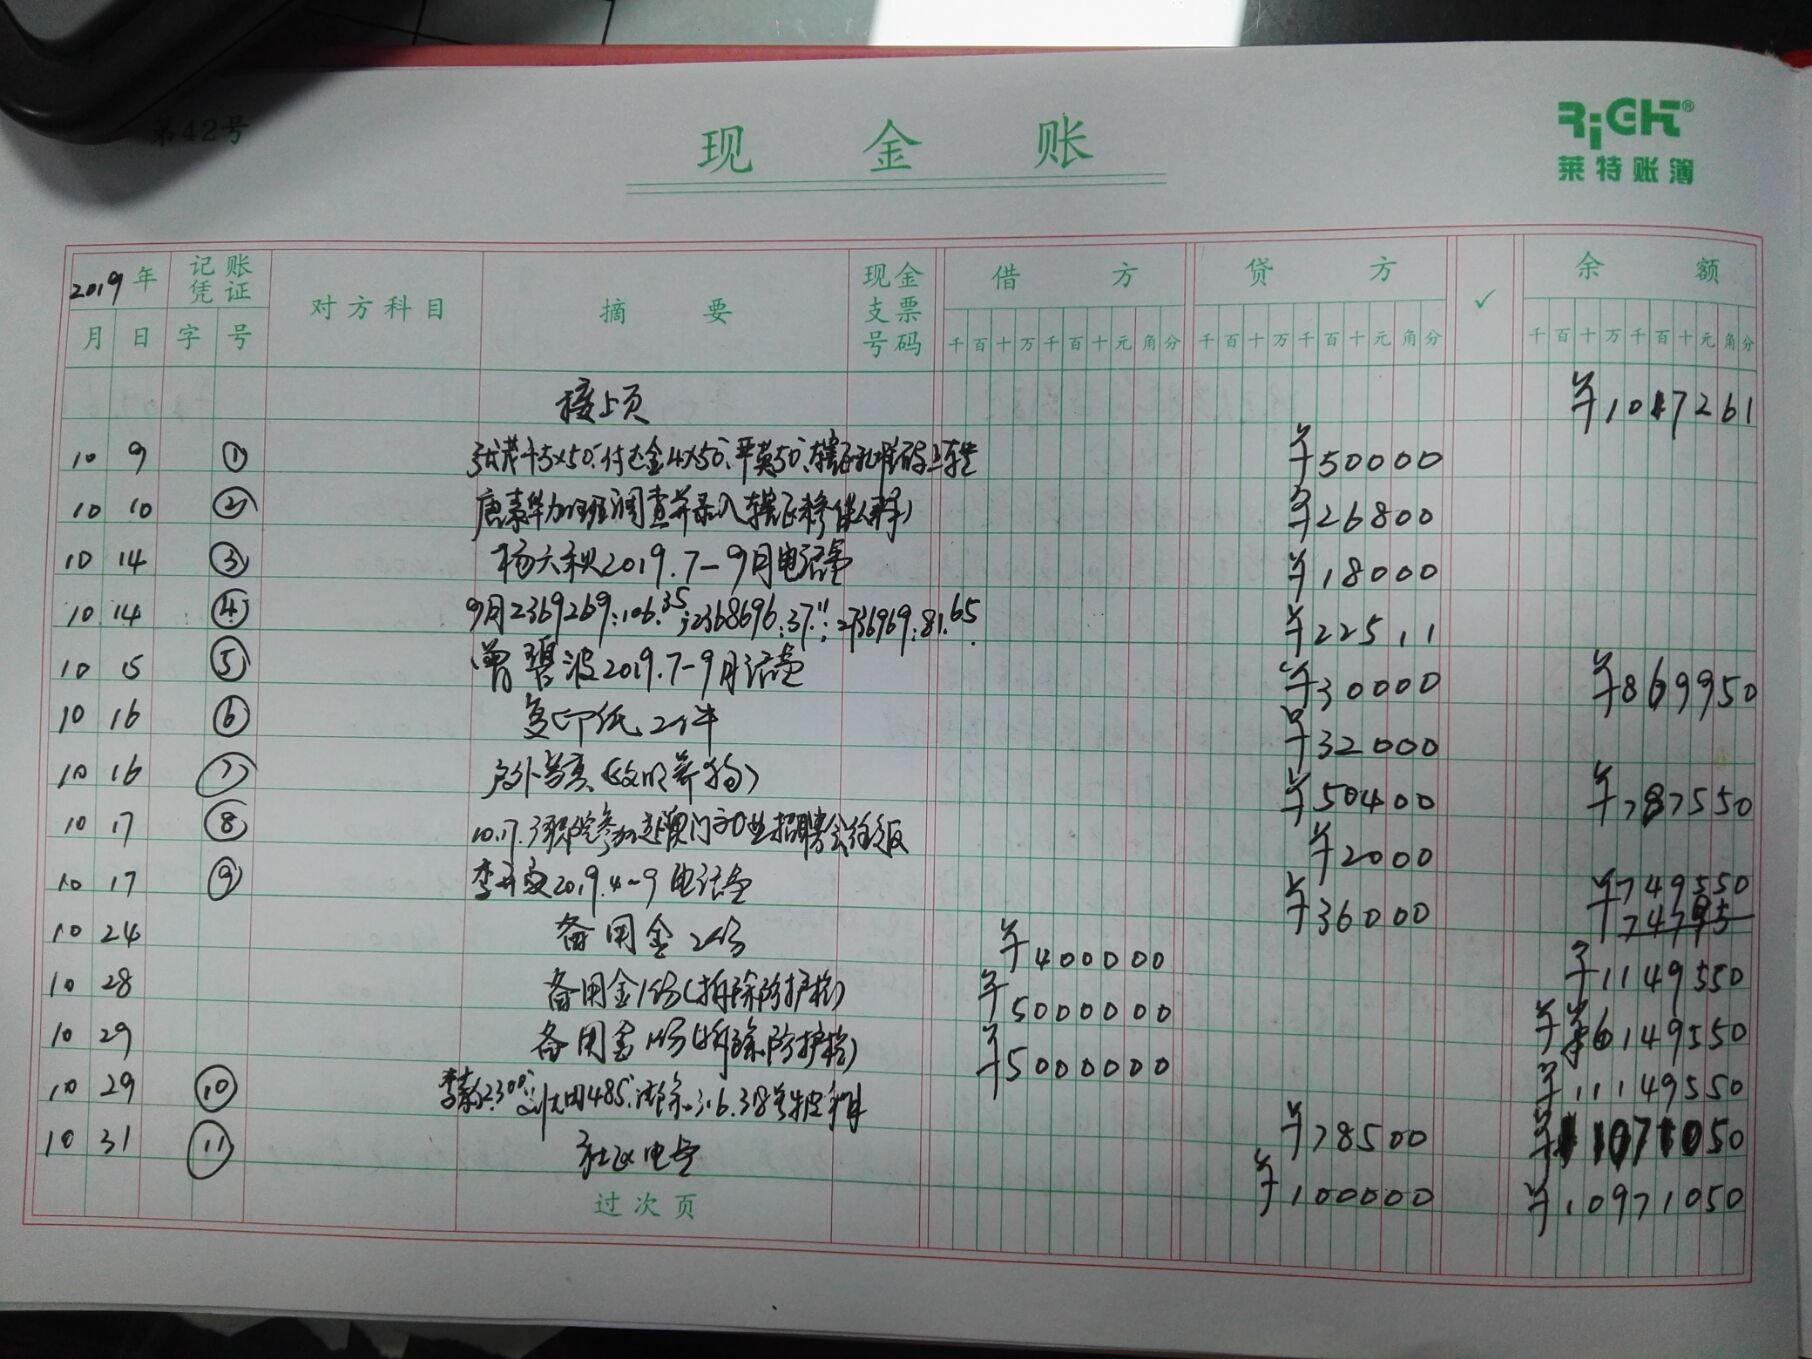 第42号
现金账
RiGHT®
莱特账簿
2019年 记账凭证 对方科目 摘要 现金支票号码 借方 贷方 ✓ 余额
月 日 字 号 千百十万千百十元角分 千百十万千百十元角分 千百十万千百十元角分
接上页 ¥1017261
10 9 ① ¥50000
10 10 ② ¥26800
10 14 ③ 2019.7-9月电话费 ¥18000
10 14 ④ 9月2369269:106.35;2368696:37.11;2736969:81.65 ¥22511
10 15 ⑤ 曾碧波2019.7-9月话费 ¥30000 ¥869950
10 16 ⑥ 复印纸2件 ¥32000
10 16 ⑦ ¥50400 ¥787550
10 17 ⑧ 10.17. ¥2000
10 17 ⑨ 2019.4-9电话费 ¥36000 ¥749550
10 24 备用金2份 ¥400000 ¥1149550
10 28 备用金1份(拆除防护栏) ¥5000000 ¥6149550
10 29 备用金1份(拆除防护栏) ¥5000000 ¥11149550
10 29 ⑩ ¥78500 ¥11071050
10 31 ⑪ 社区电费 ¥100000 ¥10971050
过次页